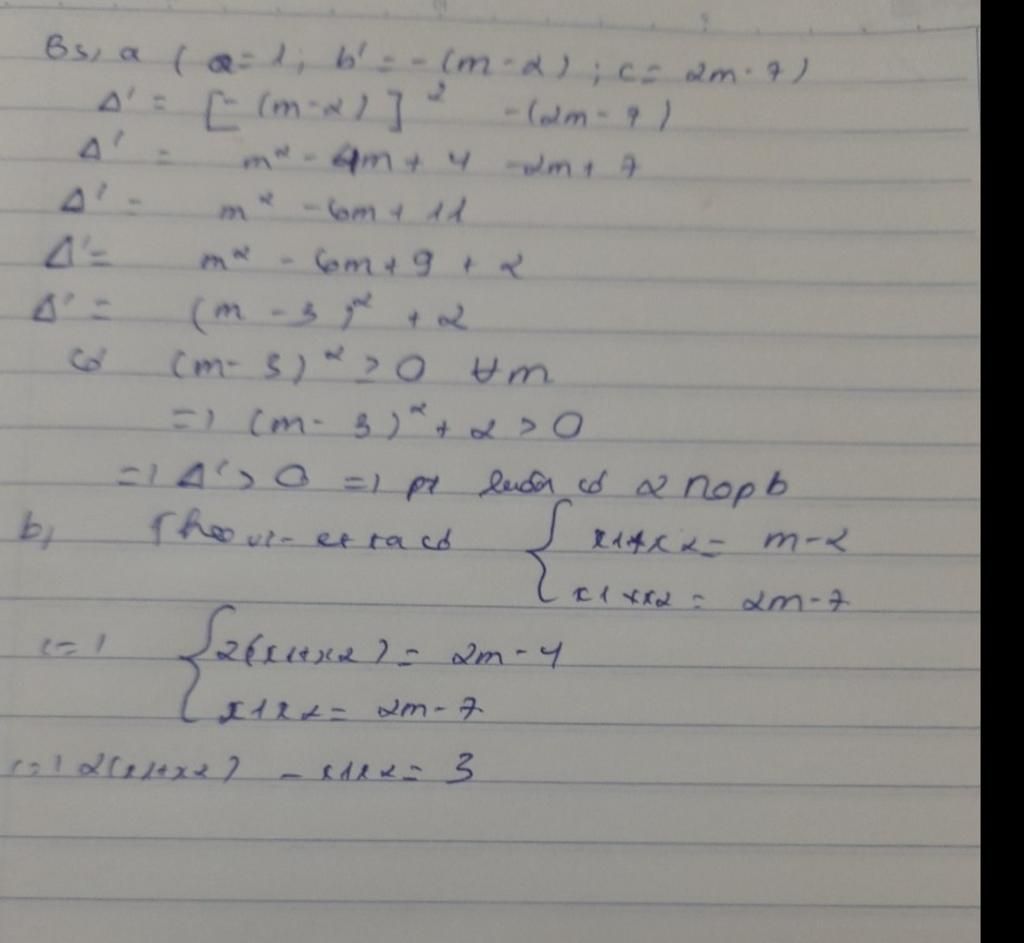 B5, a ( a = 1; b' = - (m - 2) ; c = 2m - 7 )
Δ' = [- (m - 2) ]² - (2m - 7 )
Δ' = m² - 4m + 4 - 2m + 7
Δ' = m² - 6m + 11
Δ' = m² - 6m + 9 + 2
Δ' = (m - 3 )² + 2
Có (m - 3)² ≥ 0 ∀m
=> (m - 3)² + 2 > 0
=> Δ' > 0 => pt luôn có 2 nopb
b, Theo vi-et ta có { x1 + x2 = m - 2
x1 x x2 = 2m - 7
<=> { 2(x1 + x2 ) = 2m - 4
x1x2 = 2m - 7
<=> 2(x1 + x2) - x1x2 = 3